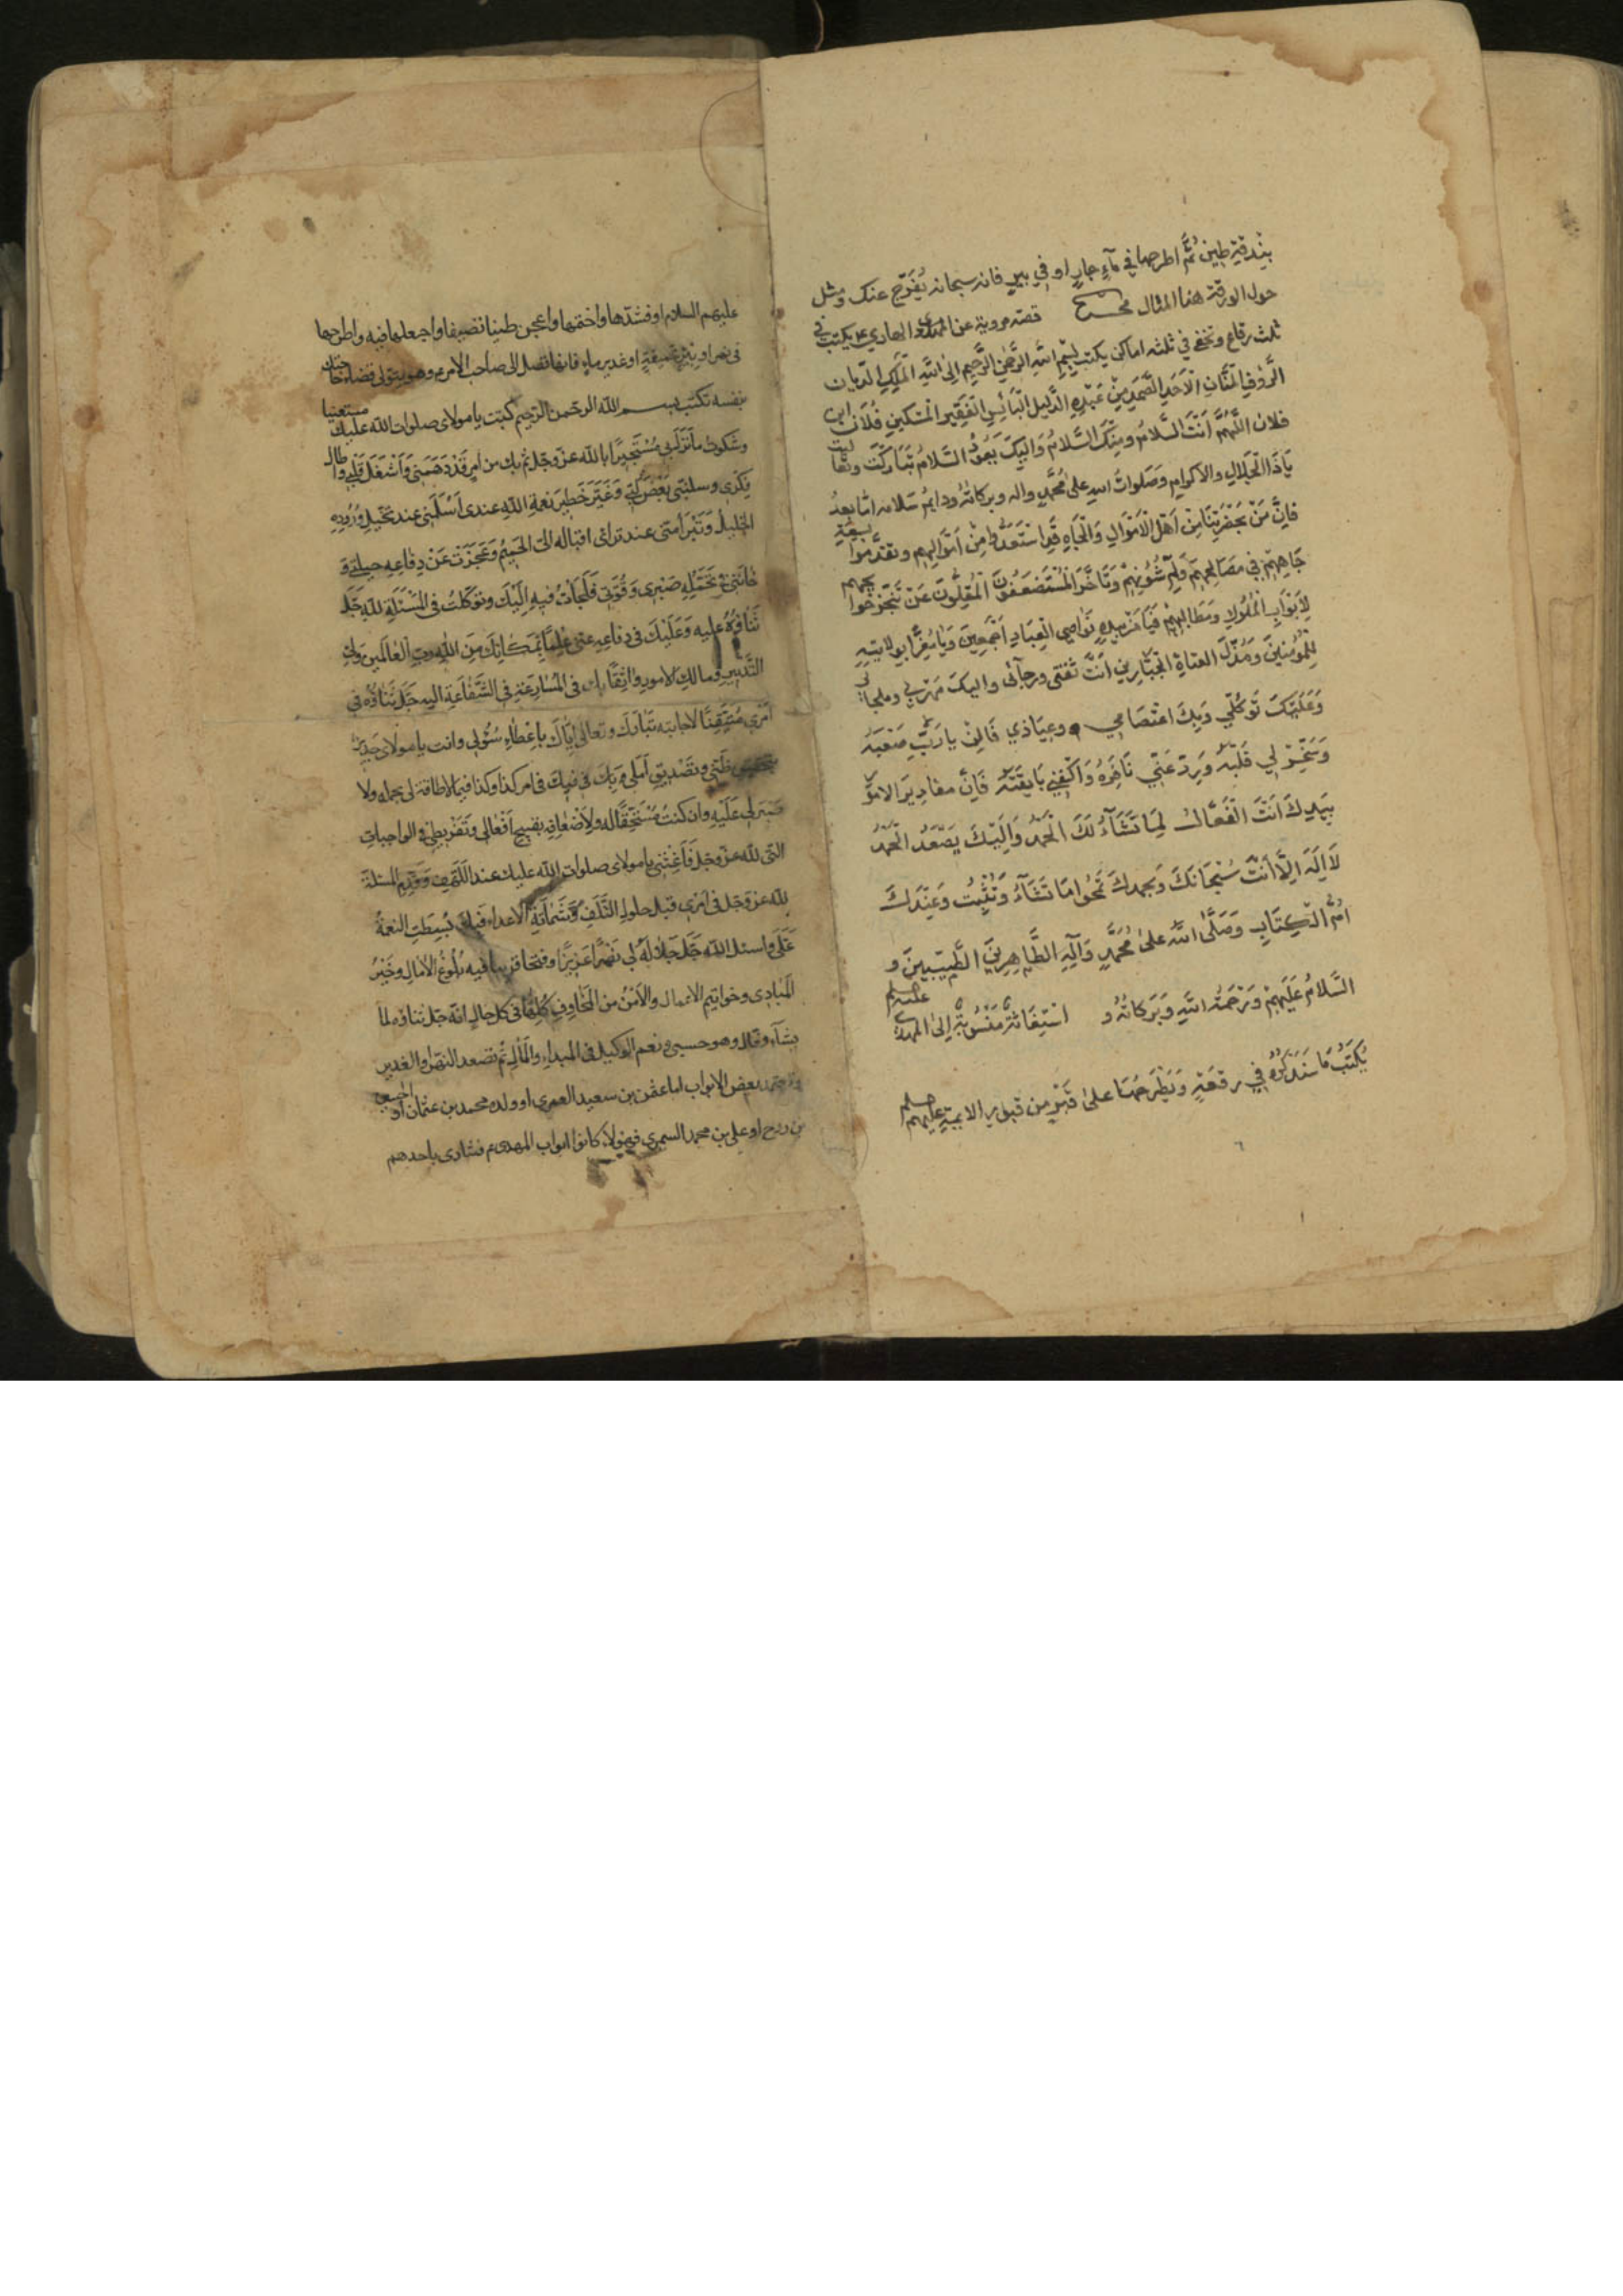 بندقة طين ثُمَّ اطرحها في مآءٍ جارٍ او في بيرٍ فانه سبحانه يُفَرِّج عنك ومثل
حول الورقة هذا المثال قصّه مروية عن الهادي ع يكتب في
ثلث رقاع وتخفى في ثلثه اماكن يكتب بِسْمِ اللهِ الرَّحمنِ الرَّحِيم اِلى اللهِ المَلِكِ الدّيان
الرَّؤفِ المَنَّانِ الْاَحَدِ الصَّمَدِ مِنْ عَبْدِهِ الذَّليل الْبَائِسِ الْفَقِيرِ الْمِسْكِينِ فُلَان ابن
فلان اللَّهُمَّ اَنْتَ السَّلامُ ومِنْكَ السَّلامُ وَاِلَيْكَ يَعُودُ السَّلامُ تَبَارَكْتَ وتعاليت
يَاذَا الْجَلالِ والاكرامِ وَصَلَواتُ اللهِ عَلىٰ مُحَمَّدٍ واله وبركاتُهُ ودايمُ سَلامه امّا بعدُ
فَاِنَّ مَنْ بِحَضْرَتِنَا مِنْ اَهْلِ الْاَمْوالِ وَالْجَاهِ قَدِ اسْتَعَدُّوا مِنْ اَمْوالِهِم وتقدَّموا بسِعَةِ
جَاهِهِمْ فِي مَصَالِحِهِمْ وَلَمِّ شُئُونِهِمْ وَتَأخَّرَ الْمُسْتَضْعَفُونَ الْمُقِلُّونَ عَنْ تَنَجُّزِ حَوائِجِهِم
لِاَبْوَابِ الْمُلُوكِ وَمَطَالِبِهِمْ فَيَا مَنْ بِيَدِهِ نَوَاصِي الْعِبَادِ اَجْمَعِينَ وَيَا مُعِزًّا بِوِلايَتِهِ
لِلمُؤْمِنِينَ وَمُذِلَّ العتاةِ الْجَبَّارِين اَنْتَ ثقتي ورجآئى واليكَ مَهْرَبي وملجائي
وَعَلَيْكَ تَوَكُّلِي وَبِكَ اعْتصَامِي وعِيَاذي فَاَلِنْ يا رَبِّ صَعْبَهُ
وَسَخِّرْ لِي قَلْبَهُ وَرُدَّ عَنّي نَافِرَهُ وَاكْفِنِي بَائِقَتَهُ فَاِنَّ مقادِيرَ الامور
بِيَدِكَ اَنْتَ الْفَعَّالُ لِمَا تَشَآءُ لَكَ الْحَمْدُ وَاِلَيْكَ يَصْعَدُ الْحَمْدُ
لَا اِلَهَ اِلَّا اَنْتَ سُبْحَانَكَ وَبحمدكَ تَمْحُوا مَا تَشَآءُ وَتُثْبِتُ وَعِنْدَكَ
اُمُّ الْكِتَابِ وَصَلَّى اللهُ عَلىٰ مُحَمَّدٍ وَآلِهِ الطَّاهِرِينَ الطَّيِّبِينَ و
السَّلامُ عَلَيْهِمْ وَرَحْمَةُ اللهِ وَبَرَكاتُهُ و اسْتِغَاثَةٌ مَنْسُوبَةٌ اِلىٰ المهدى
يُكْتَبُ مَا سَنَذْكُرُهُ فِي رقعَةٍ وَيَطْرَحُهَا عَلىٰ قَبْرٍ من قبور الائمةِ عليهم
عليهم السلام او فشدّها واختمها واعجن طينا نضيفا واجعلها فيه واطرحها
فى نهر او بِئرٍ عَمِيقةٍ او غدير ماءٍ فانها تصل الى صاحب الامر ع وهو يتولى قضاء حاجتك
بنفسه تكتب بسم الله الرحمن الرحيم كتبت يا مولاى صلوات الله عليك مستغيثا
وشكوتُ ما نَزَلَ بي مُسْتَجِيرًا بالله عزّ وجل ثم بك من امرٍ قَدْ دَهَمَنى وَاَشْغَلَ قَلْبى واطال
فِكْرى وسلبنى بَعْضَ لُبّى وَغَيَّرَ خَطِيرَ نعمةِ اللهِ عندى اَسْلَمَنِى عند تَخَيُّلِ وُرُودِهِ
الخليلُ وَتَبَرّأ منّى عند ترائى اقباله اليّ الحَمِيمُ وَعَجَزَتْ عَنْ دِفَاعِهِ حيلتى وَ
خَانَنِى فى تَحَمُّلِهِ صَبْرِى وَ قُوَّتِى فَلَجَأتُ فيهِ اِلَيْكَ وتوكّلتُ فى المَسْئَلَةِ للهِ جَلَّ
ثَنَاؤُهُ عليه وَعَلَيْكَ فى دفاعِهِ عنّى عِلْمًا بِمَكَانِكَ مِنَ اللهِ ربِّ الْعَالَمِين وَلِيِّ
التَّدْبِيرِ ومالكِ الامورِ واثِقًا بك فى المُسَارَعَةِ فى الشَّفَاعَةِ اليهِ جَلَّ ثَنَاؤُه فى
اَمْرِى مُتَيَقِّنًا لاجابته تَبَارَكَ وتعالى اِيّاكَ بِاِعْطَاءِ سُؤلِى وانت يا مولاى جَدِيرٌ
بتحقيق ظَنّى وتَصْدِيقِ اَمَلى فِيكَ فى امر كذا وكذا فيما لا طاقة لى بحمله ولا
صَبْرَ لى عَلَيْهِ وان كنتُ مُسْتَحِقًّا له ولِاَضْعَافِهِ بقبيح اَفْعَالِى وَتَفْرِيطِى فى الواجباتِ
التى لله عزّ وجل فَاَغِثْنى يا مولاى صلوات الله عليك عند اللَّهَفِ وَقَدِّمِ المسئلةَ
لله عزّ وَجَل فى اَمْرِى قبل حلولِ التَّلَفِ وَشَمَاتَةِ الاعداء فَبِكَ بُسِطَتِ النعمةُ
عَلَيَّ واسئل اللهَ جَلّ جَلالُهُ لى نَصْرًا عَزِيزًا وفتحا قريبا فيه بُلُوغُ الآمالِ وخَيْرُ
المَبَادِى وخواتيم الاعمال والاَمْنُ من المَخَاوِفِ كُلِّهَا فى كل حال انّه جَلّ ثناؤه لما
يشآء فعّال وهو حسبى ونعم الوكيل فى المبداء والمآل ثُم تصعد النهر او الغدير
وتعتمد بعض الابواب اما عثمن بن سعيد العمرى او ولده محمد بن عثمان او الحسين
بن روح او علي بن محمد السمرى فهؤلاء كانوا ابواب المهدى ع فتنادى باحدهم